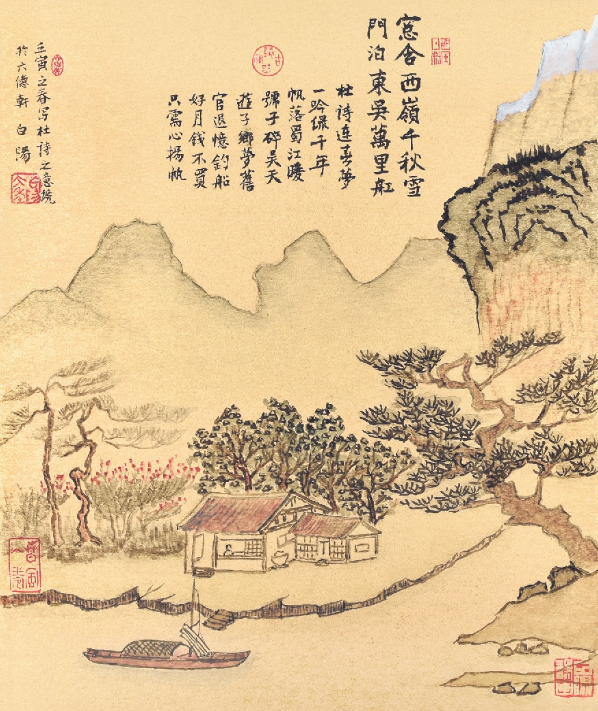 窓含西嶺千秋雪
門泊東吳萬里船
杜詩連喜夢
一吟保千年
帆落蜀江暖
號子碎吳天
遊子鄉夢舊
官退憶釣船
好月錢不買
只需心揚帆
壬寅之春写杜詩之意境
於六傳軒 白陽